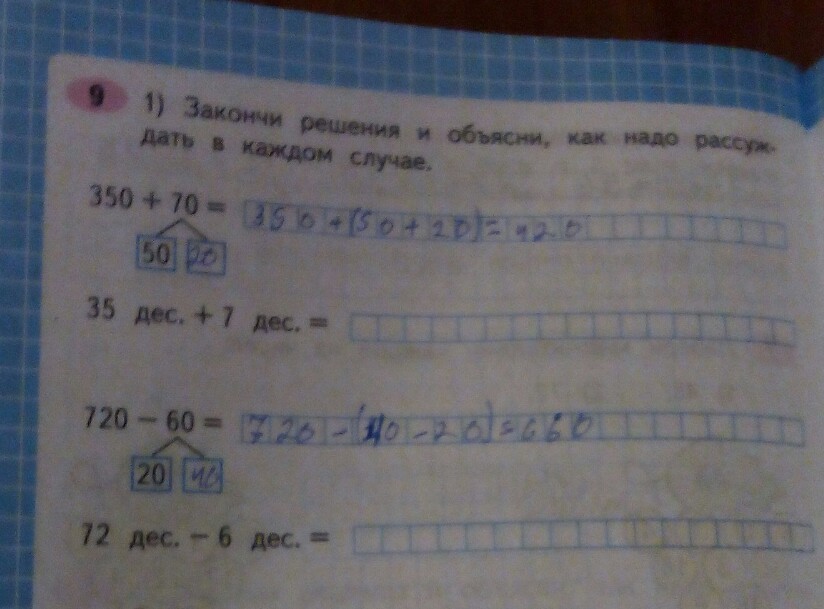 9 1) Закончи решения и объясни, как надо рассуж-
дать в каждом случае.
350 + 70 = 350+(50+20)=420
50 20
35 дес. + 7 дес. =
720 − 60 = 720-(40-20)=660
20 40
72 дес. − 6 дес. =